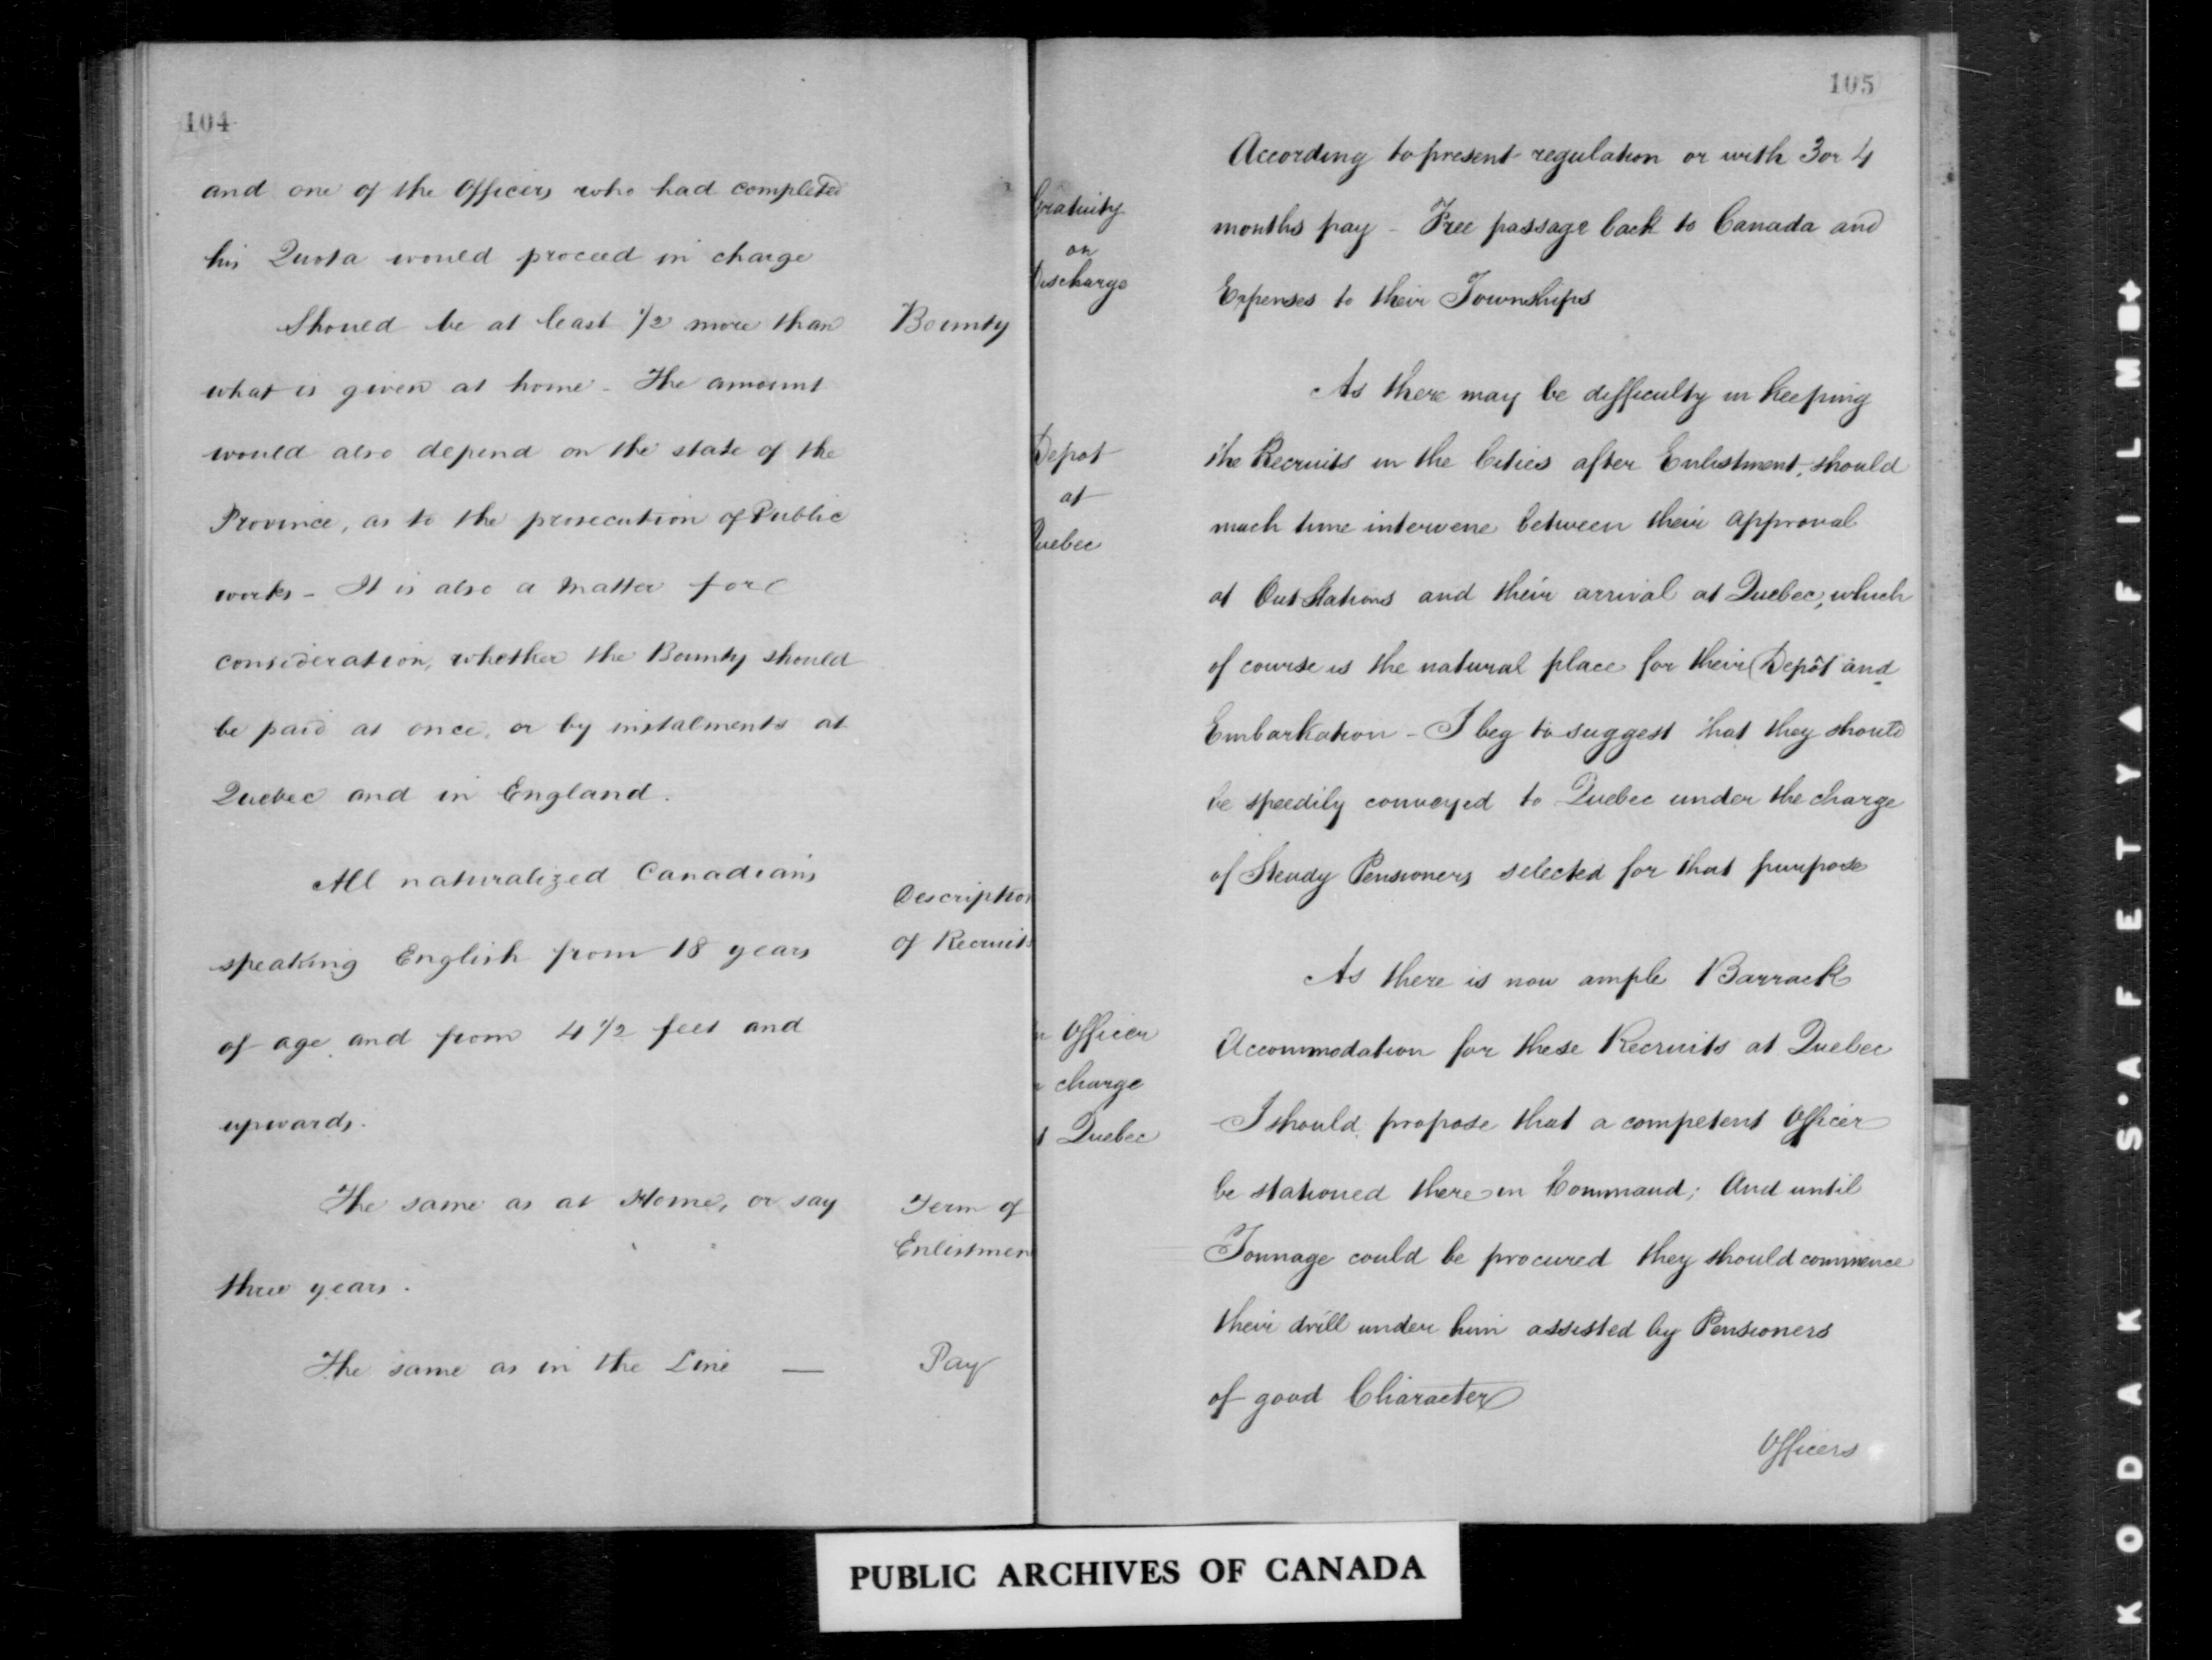 104
and one of the Officers who had completed
his Quota would proceed in charge
Should be at least 1/2 more than
Bounty
what is given at home - The amount
would also depend on the state of the
Province, as to the prosecution of Public
works - It is also a matter for
consideration, whether the Bounty should
be paid at once, or by instalments at
Quebec and in England.
All naturalized Canadians
Description
of Recruits
speaking English from 18 years
of age and from 4 1/2 feet and
upwards.
The same as at Home, or say
Term of
Enlistmen
three years.
The same as in the Line —
Pay
105
According to present regulation or with 3 or 4
Gratuity
on
Discharge
months pay - Free passage back to Canada and
Expenses to their Townships
As there may be difficulty in keeping
Depot
at
Quebec
the Recruits in the Cities after Enlistment, should
much time intervene between their approval
at Out Stations and their arrival at Quebec, which
of course is the natural place for their Depôt and
Embarkation - I beg to suggest that they should
be speedily conveyed to Quebec under the charge
of Steady Pensioners selected for that purpose
As there is now ample Barrack
Officer
charge
Quebec
Accommodation for these Recruits at Quebec
I should propose that a competent Officer
be stationed there in Command; And until
Tonnage could be procured they should commence
their drill under him assisted by Pensioners
of good Character
Officers
PUBLIC ARCHIVES OF CANADA
KODAK S·AFETY▲FILM■◆